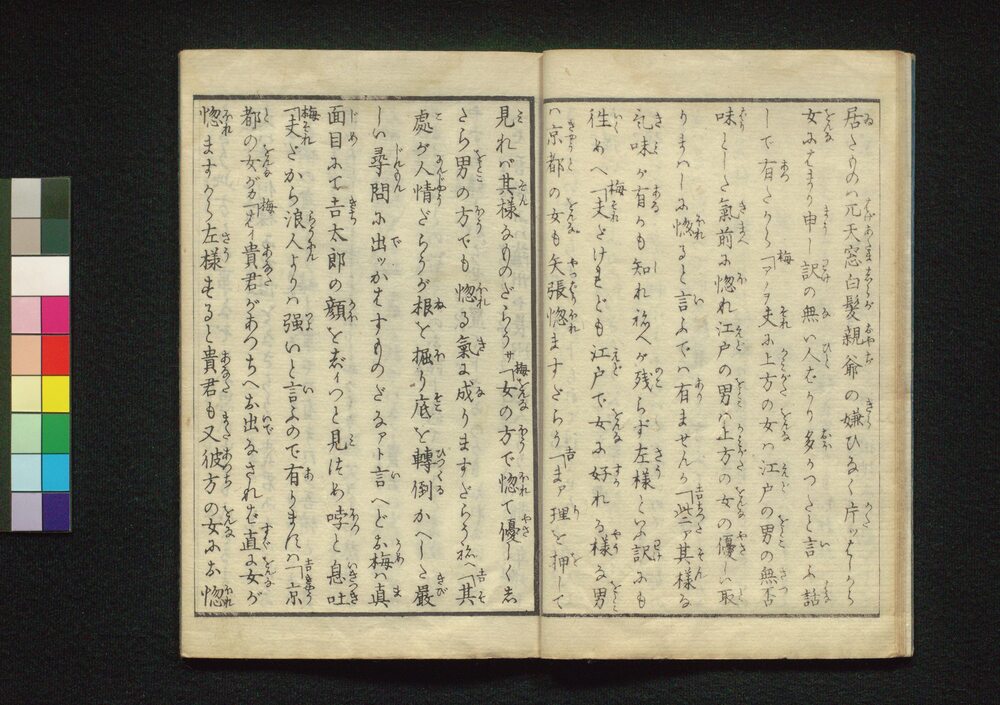 居たものハ兀天窓白髪親爺の嫌ひなく片ッはしから
女にはまり申し訳の無い人ばかり多かつたと言ふ話
しで有たから梅「アノヲ夫に上方の女ハ江戸の男の無否
味とした氣前に惚れ江戸の男ハ上方の女の優しい取
りまハしに惚ると言ふでハ有ませんか吉「些ァ其様な
気味が有かも知れ祢へが残らず左様といふ訳にも
往めへ梅「夫だけれども江戸で女に好れる様な男
ハ京都の女も矢張惚ますだらう吉「まァ理を押して
見れバ其様なものだらうサ梅「女の方で惚て優しくし
たら男の方でも惚る氣に成りますだらう祢へ吉「其
處が人情だらうが根を掘り底を轉倒かへした嚴
しい尋問に出ッかはすものだなァト言へどお梅ハ真
面目にて吉太郎の顔をぢィつと見つめ 息吐
梅「夫だから浪人よりハ強いと言ふので有りまんハ吉「京
都の女がカ梅「はイ貴君があつちへお出なされば直に女が
惚ますから左様すると貴君も又彼方の女にお惚